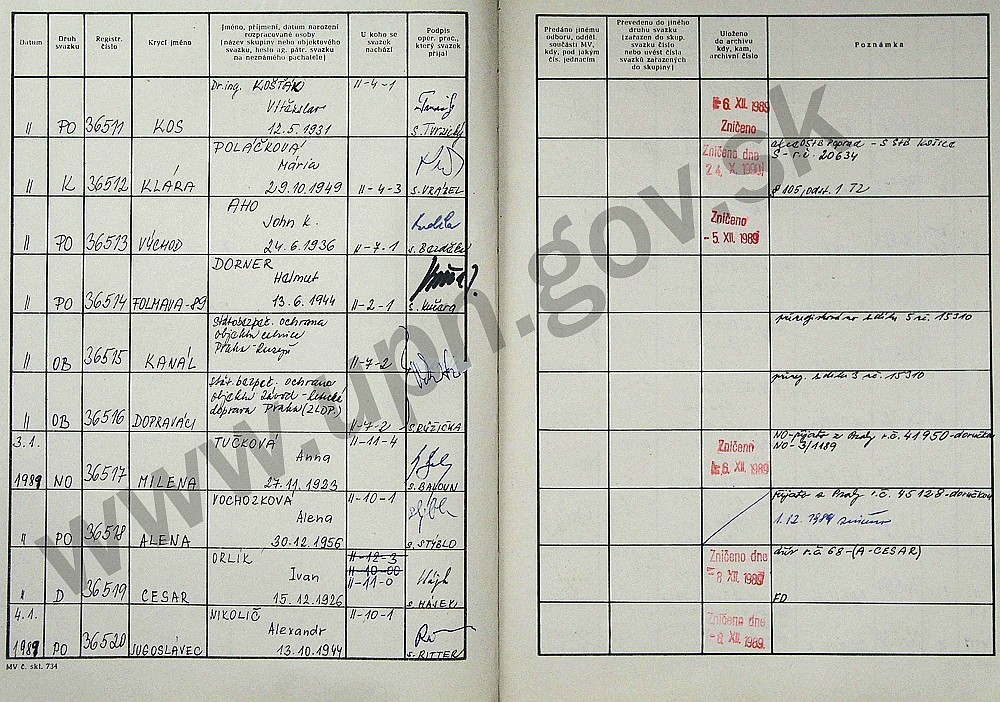 Datum
Druh
svazku
Registr.
číslo
Krycí jméno
Jméno, příjmení, datum narození
rozpracované osoby
(název skupiny nebo objektového
svazku, heslo ag. pátr. svazku
na neznámého pachatele)
U koho se
svazek
nachází
Podpis
oper. prac.,
který svazek
přijal
Předáno jinému
odboru, odděl.
součásti MV,
kdy, pod jakým
čís. jednacím
Převedeno do jiného
druhu svazku
(zařazen do skup.
svazku číslo
nebo uvést čísla
svazků zařazených
do skupiny)
Uloženo
do archivu
kdy, kam,
archivní číslo
Poznámka
Dr. ing. KOŠŤÁK
II-4-1
Vítězslav
6. XII. 1989
Zničeno
II PO 36511 KOS 12.5.1931 s. Tvrzický
POLÁČKOVÁ
Mária
Zničeno dne
24. X. 1989
Š-r.č. 20634
II K 36512 KLÁRA 29.10.1949 II-4-3 S. VRÁBEL
§ 105, odst. 1 TZ
AHO
John K.
Zničeno
- 5. XII. 1989
II PO 36513 VÝCHOD 24.6.1936 II-7-1
DORNER
Helmut
II PO 36514 FOLMAVA-89 13.6.1944 II-2-1 s. Kučera
Státobezpeč. ochrana
objektu celnice
Praha-Ruzyň
II OB 36515 KANÁL II-7-2
15310
Stát. bezpeč. ochrana
objektu závod - letecká
doprava Praha (2LDP.)
II OB 36516 DOPRAVÁCI II-7-2 S. RŮŽIČKA
15310
3.1.
TUČKOVÁ
II-11-4
Anna
Zničeno
6. XII. 1989
NO-přijato z Prahy r.č. 41950-doručkou
NO-3/1189
1989 NO 36517 MILENA 27.11.1923 s. BAVOUN
VOCHOZKOVÁ
II-10-1
Alena
přijato z Prahy r.č. 45128-doručkou
1.12.1989 zničeno
II PO 36518 ALENA 30.12.1956 s. STÝBLO
ORLÍK
II-12-3
II-10-00
II-11-0
Ivan
Zničeno dne
- 8. XII. 1989
r.č. 68-(A-CESAR)
FD
II D 36519 CESAR 15.12.1926 s. HÁJEK
4.1.
NIKOLIČ
II-10-1
Alexandr
Zničeno dne
- 8. XII. 1989.
1989 PO 36520 JUGOSLÁVEC 13.10.1944 s. RITTER
MV č. skl. 734
www.upn.gov.sk